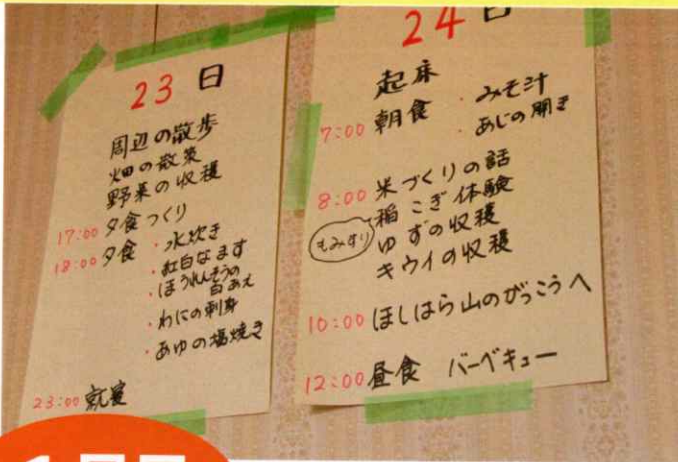 23日
周辺の散歩
畑の散策
野菜の収穫
17:00 夕食つくり
18:00 夕食 ・水炊き
・紅白なます
・ほうれんそうの
白あえ
・わにの刺身
・あゆの塩焼き
23:00 就寝
24日
起床
7:00 朝食 ・みそ汁
・あじの開き
8:00 米づくりの話
稲こぎ体験
もみすり
ゆずの収穫
キウイの収穫
10:00 ほしはら山のがっこうへ
12:00 昼食 バーベキュー